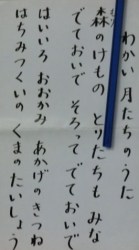 わかい月たちのうた
森のけもの とりたちもみな
でておいで そろってでておいで
はいいろおおかみ あかげのきつね
はちみつくいの くまのたいしょう